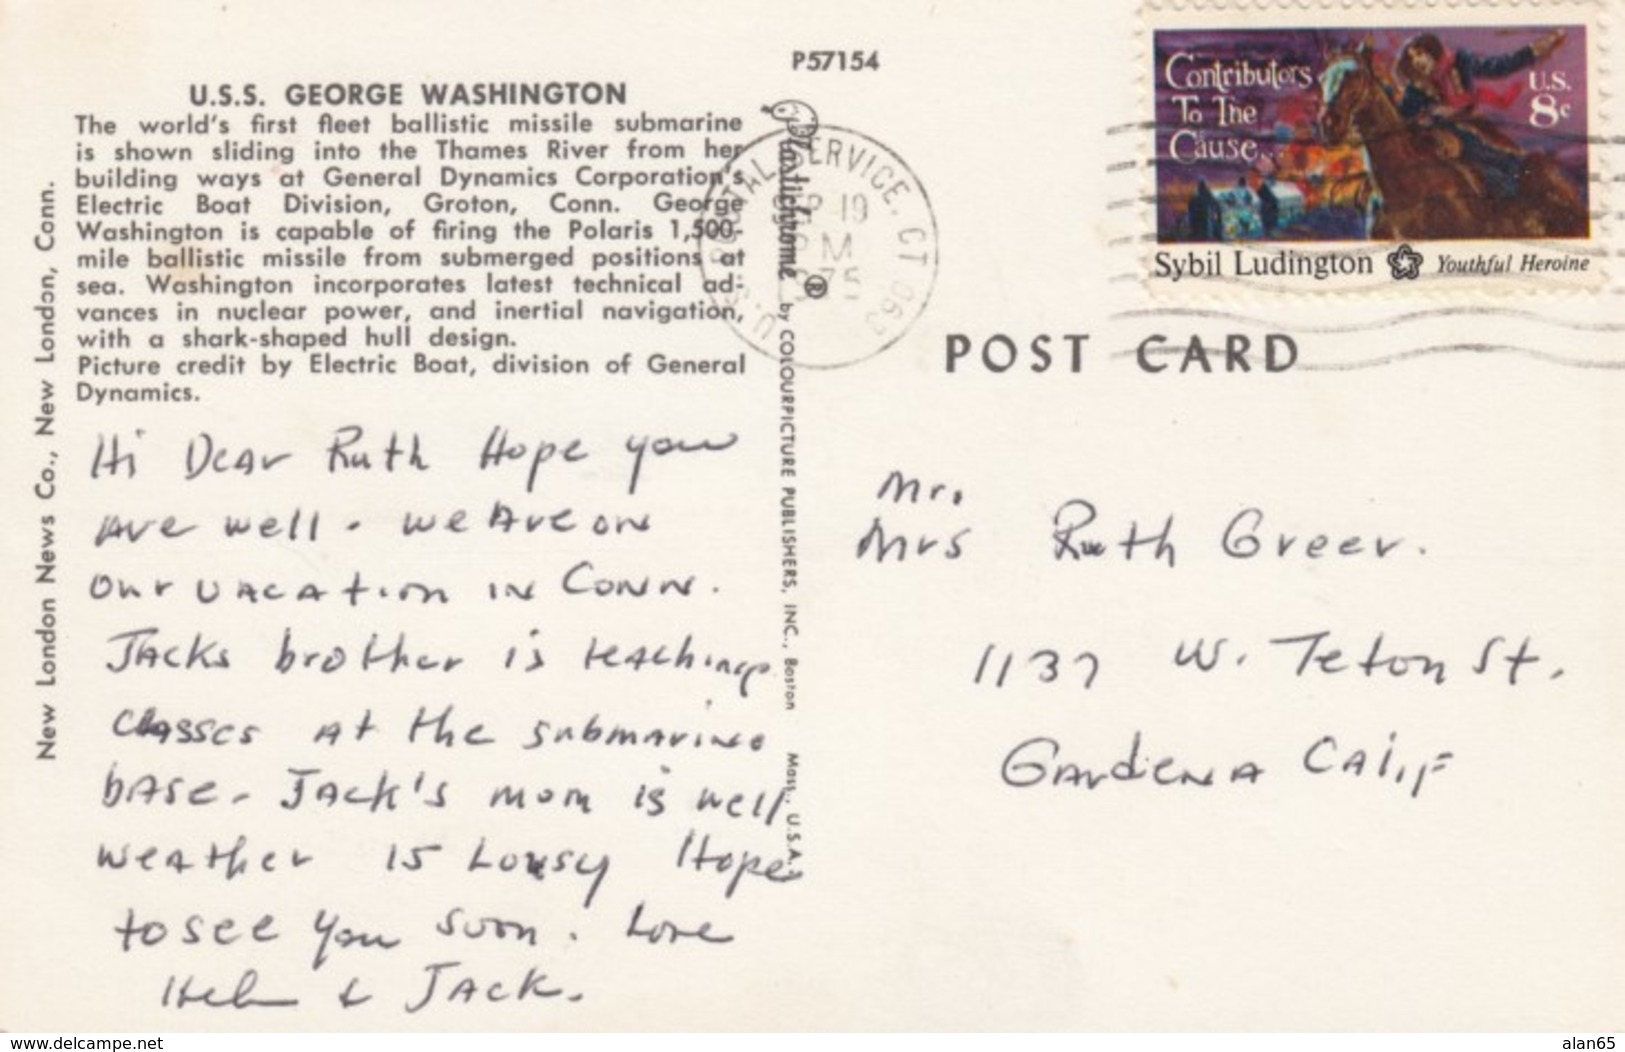 P57154
U.S.S. GEORGE WASHINGTON
The world's first fleet ballistic missile submarine
is shown sliding into the Thames River from her
building ways at General Dynamics Corporation's
Electric Boat Division, Groton, Conn. George
Washington is capable of firing the Polaris 1,500-
mile ballistic missile from submerged positions at
sea. Washington incorporates latest technical ad-
vances in nuclear power, and inertial navigation,
with a shark-shaped hull design.
Picture credit by Electric Boat, division of General
Dynamics.
New London News Co., New London, Conn.
Hi Dear Ruth Hope you
are well. We are on
our vacation in Conn.
Jacks brother is teaching
classes at the submarine
base. Jack's mom is well
weather is Lousy Hope
to see you soon. Love
Helen & Jack.
Plastichrome ® by COLOURPICTURE PUBLISHERS, INC., Boston Mass., U.S.A.
U.S. POSTAL SERVICE, CT 060
19
PM
1975
Contributors
To The
Cause...
U.S.
8c
Sybil Ludington Youthful Heroine
POST CARD
Mr.
Mrs Ruth Greer.
1137 W. Teton St.
Gardena Calif
www.delcampe.net
alan65